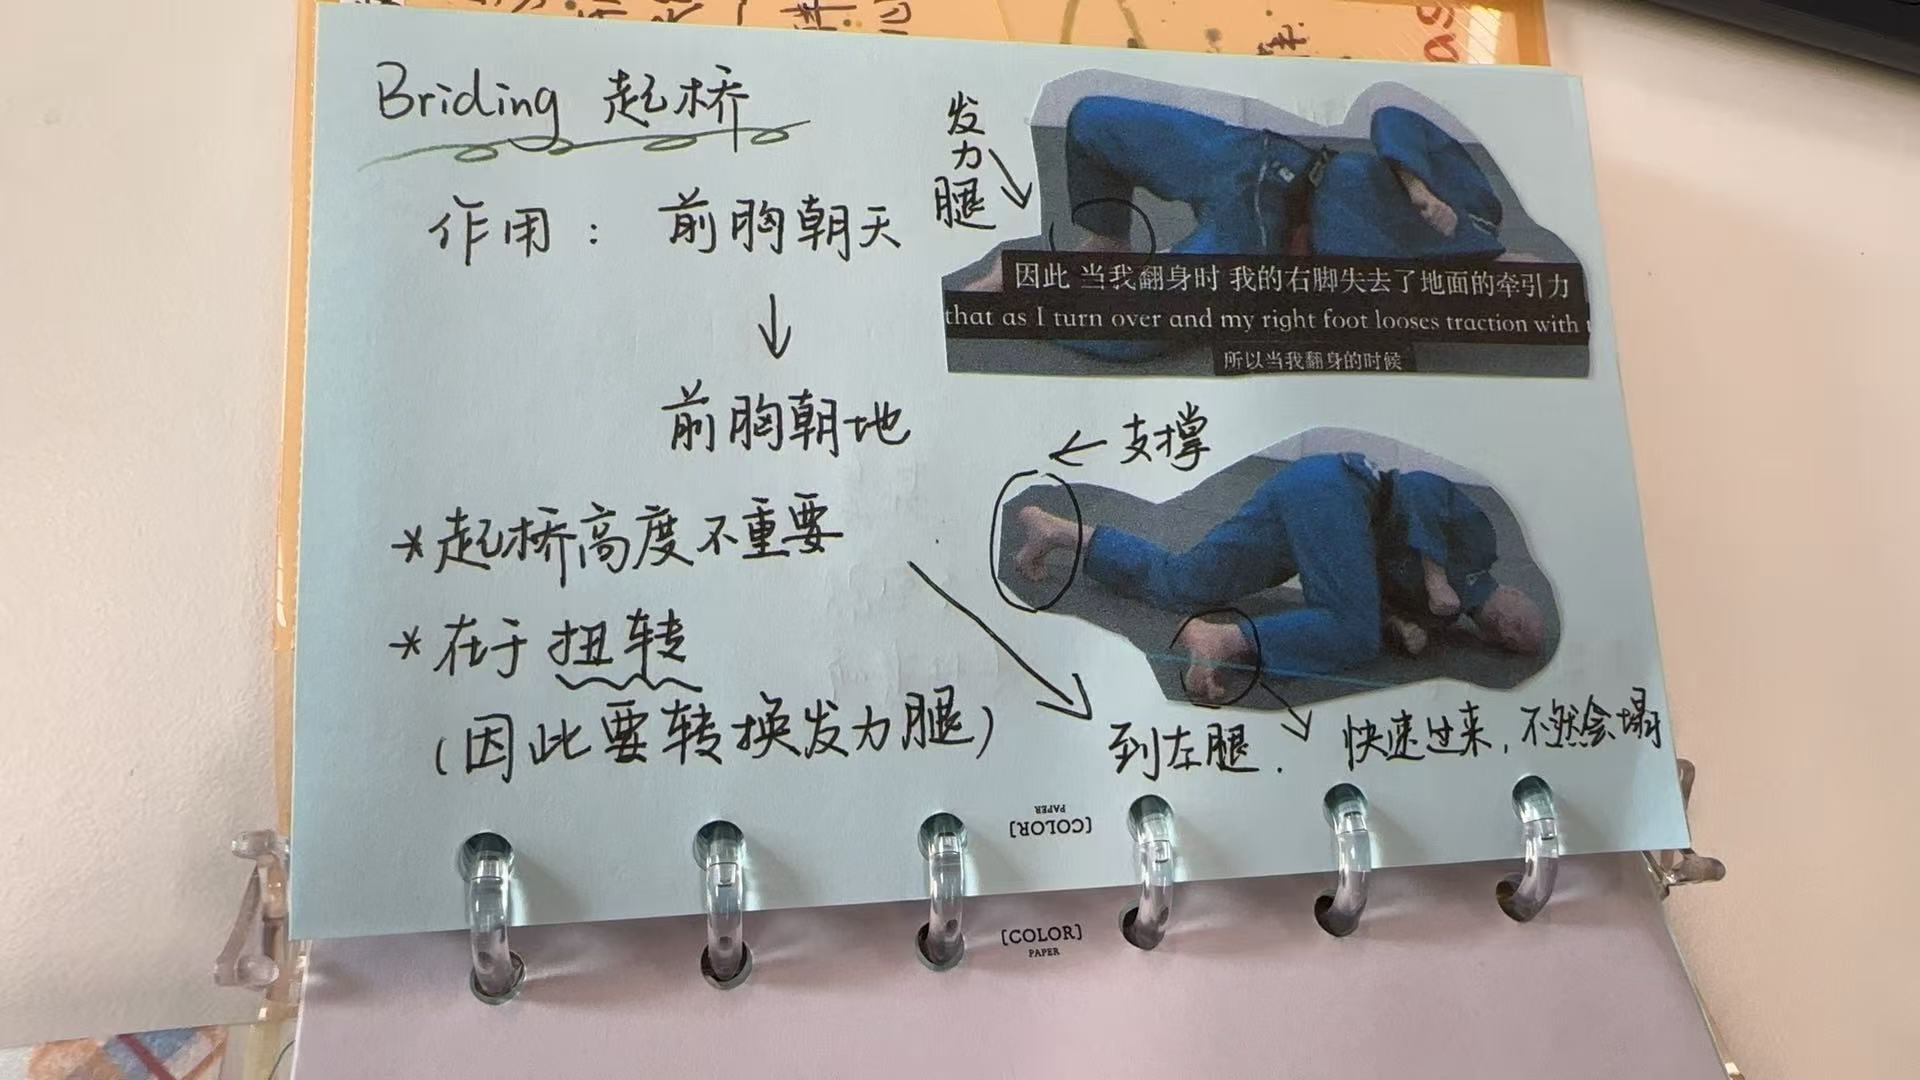 Briding 起桥
作用： 前胸朝天
↓
前胸朝地
*起桥高度不重要
*在于扭转
（因此要转换发力腿）
发力腿
因此 当我翻身时 我的右脚失去了地面的牵引力
that as I turn over and my right foot looses traction with
所以当我翻身的时候
← 支撑
到左腿.
快速过来，不然会塌
[COLOR]
PAPER
[COLOR]
PAPER